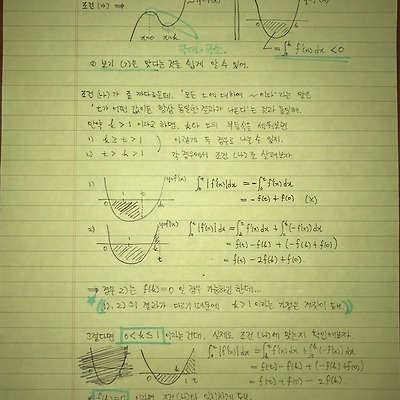 조건 (가) ⇒
y=f(x)
x=0 x=k
극대, 극소.
0 k
= ∫₀ᵏ f'(x)dx < 0
② 보기 (ㄱ)은 맞다는 것을 쉽게 알 수 있어.
조건 (나)가 좀 까다로운데, '모든 t에 대하여 ~이다'라는 말은
't가 어떤 값이든 항상 동일한 결과가 나온다'는 것과 동일해.
만약 k > 1 이라고 하면, k와 t의 부등식을 세워보면
1) k ≥ t > 1
2) t > k > 1
이렇게 두 경우로 나눌 수 있지.
각 경우에서 조건 (나)를 살펴보자
1)
1 t k
y=f'(x)
∫₀ᵗ |f'(x)|dx = -∫₀ᵗ f'(x)dx
= -f(t) + f(0) (X)
2)
1 k t
y=f'(x)
∫₀ᵗ |f'(x)|dx = ∫ₖᵗ f'(x)dx + ∫₀ᵏ(-f'(x))dx
= f(t) - f(k) + (-f(k) + f(0))
= f(t) - 2f(k) + f(0).
⇒ 경우 2)는 f(k)=0 일 경우 가능하긴 한데...
(1), 2)의 결과가 다르기 때문에 k > 1 이라는 가정은 거짓이 돼.)
그렇다면 0 < k ≤ 1 이라는 건데, 실제로 조건 (나)에 맞는지 확인해보자.
k 1 t
∫₀ᵗ |f'(x)|dx = ∫ₖᵗ f'(x)dx + ∫₀ᵏ(-f'(x))dx
= f(t) - f(k) + (-f(k) + f(0))
= f(t) + f(0) - 2f(k).
f(k)=0 이라면 조건 (나)와 일치하게 돼.